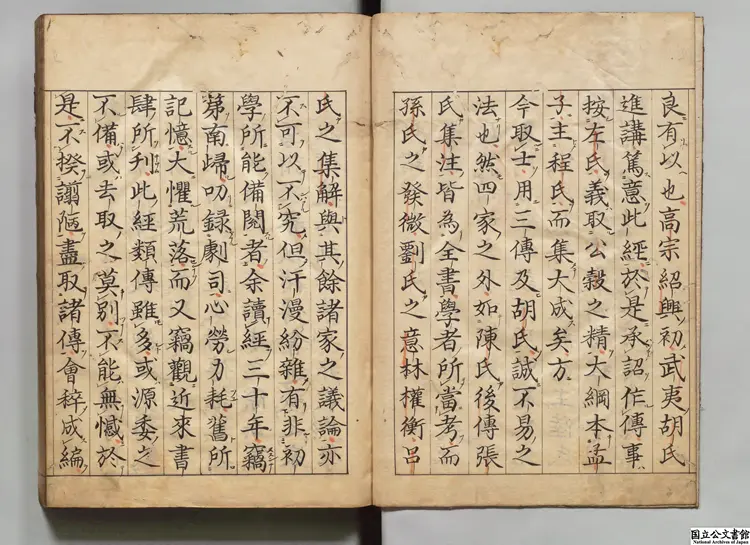 良有以也高宗紹興初武夷胡氏
進講篤意此經於是承詔作傳事
按左氏義取公穀之精大綱本孟
子主程氏而集大成矣方
今取士用三傳及胡氏誠不易之
法也然四家之外如陳氏後傳張
氏集注皆為全書學者所當考而
孫氏之發微劉氏之意林權衡呂
氏之集解與其餘諸家之議論亦
不可以不究但汗漫紛雜有非初
學所能備閱者余讀經三十年竊
第南歸叨録劇司心勞力耗舊所
記憶大懼荒落而又竊觀近來書
肆所刋此經類傳雖多或源委之
不備或去取之莫別不能無憾於
是不揆謭陋盡取諸傳會稡成編
国立公文書館
National Archives of Japan